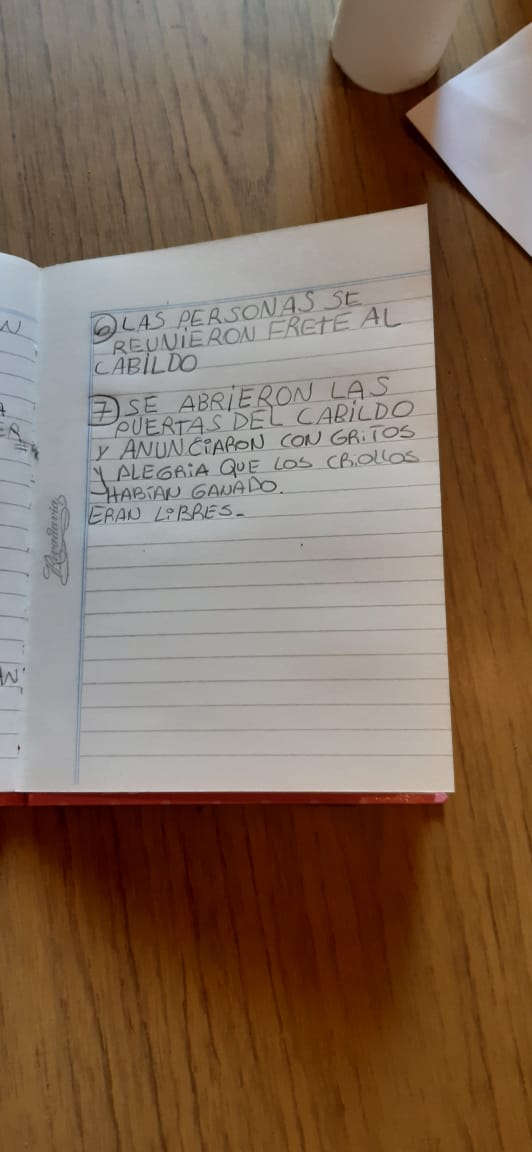 N
A
ER
AN
⑥ LAS PERSONAS SE
REUNIERON FRETE AL
CABILDO
7 SE ABRIERON LAS
PUERTAS DEL CABILDO
Y ANUNCIARON CON GRITOS
Y ALEGRIA QUE LOS CRIOLLOS
HABIAN GANADO.
ERAN LIBRES.-
Rivadavia